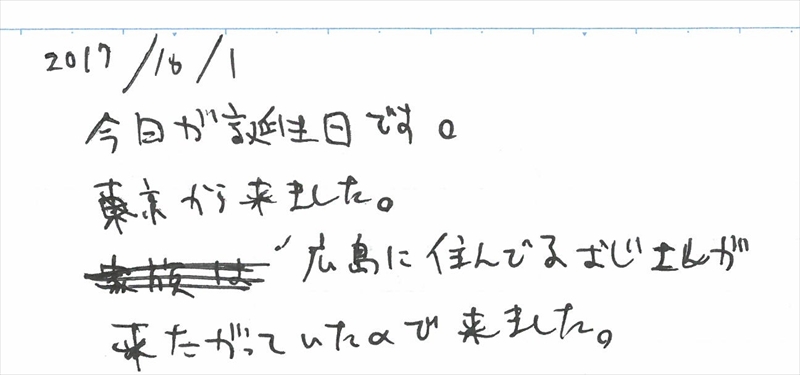 2017/10/1
今日が誕生日です。
東京から来ました。
広島に住んでるおじさんが
来たがっていたので来ました。